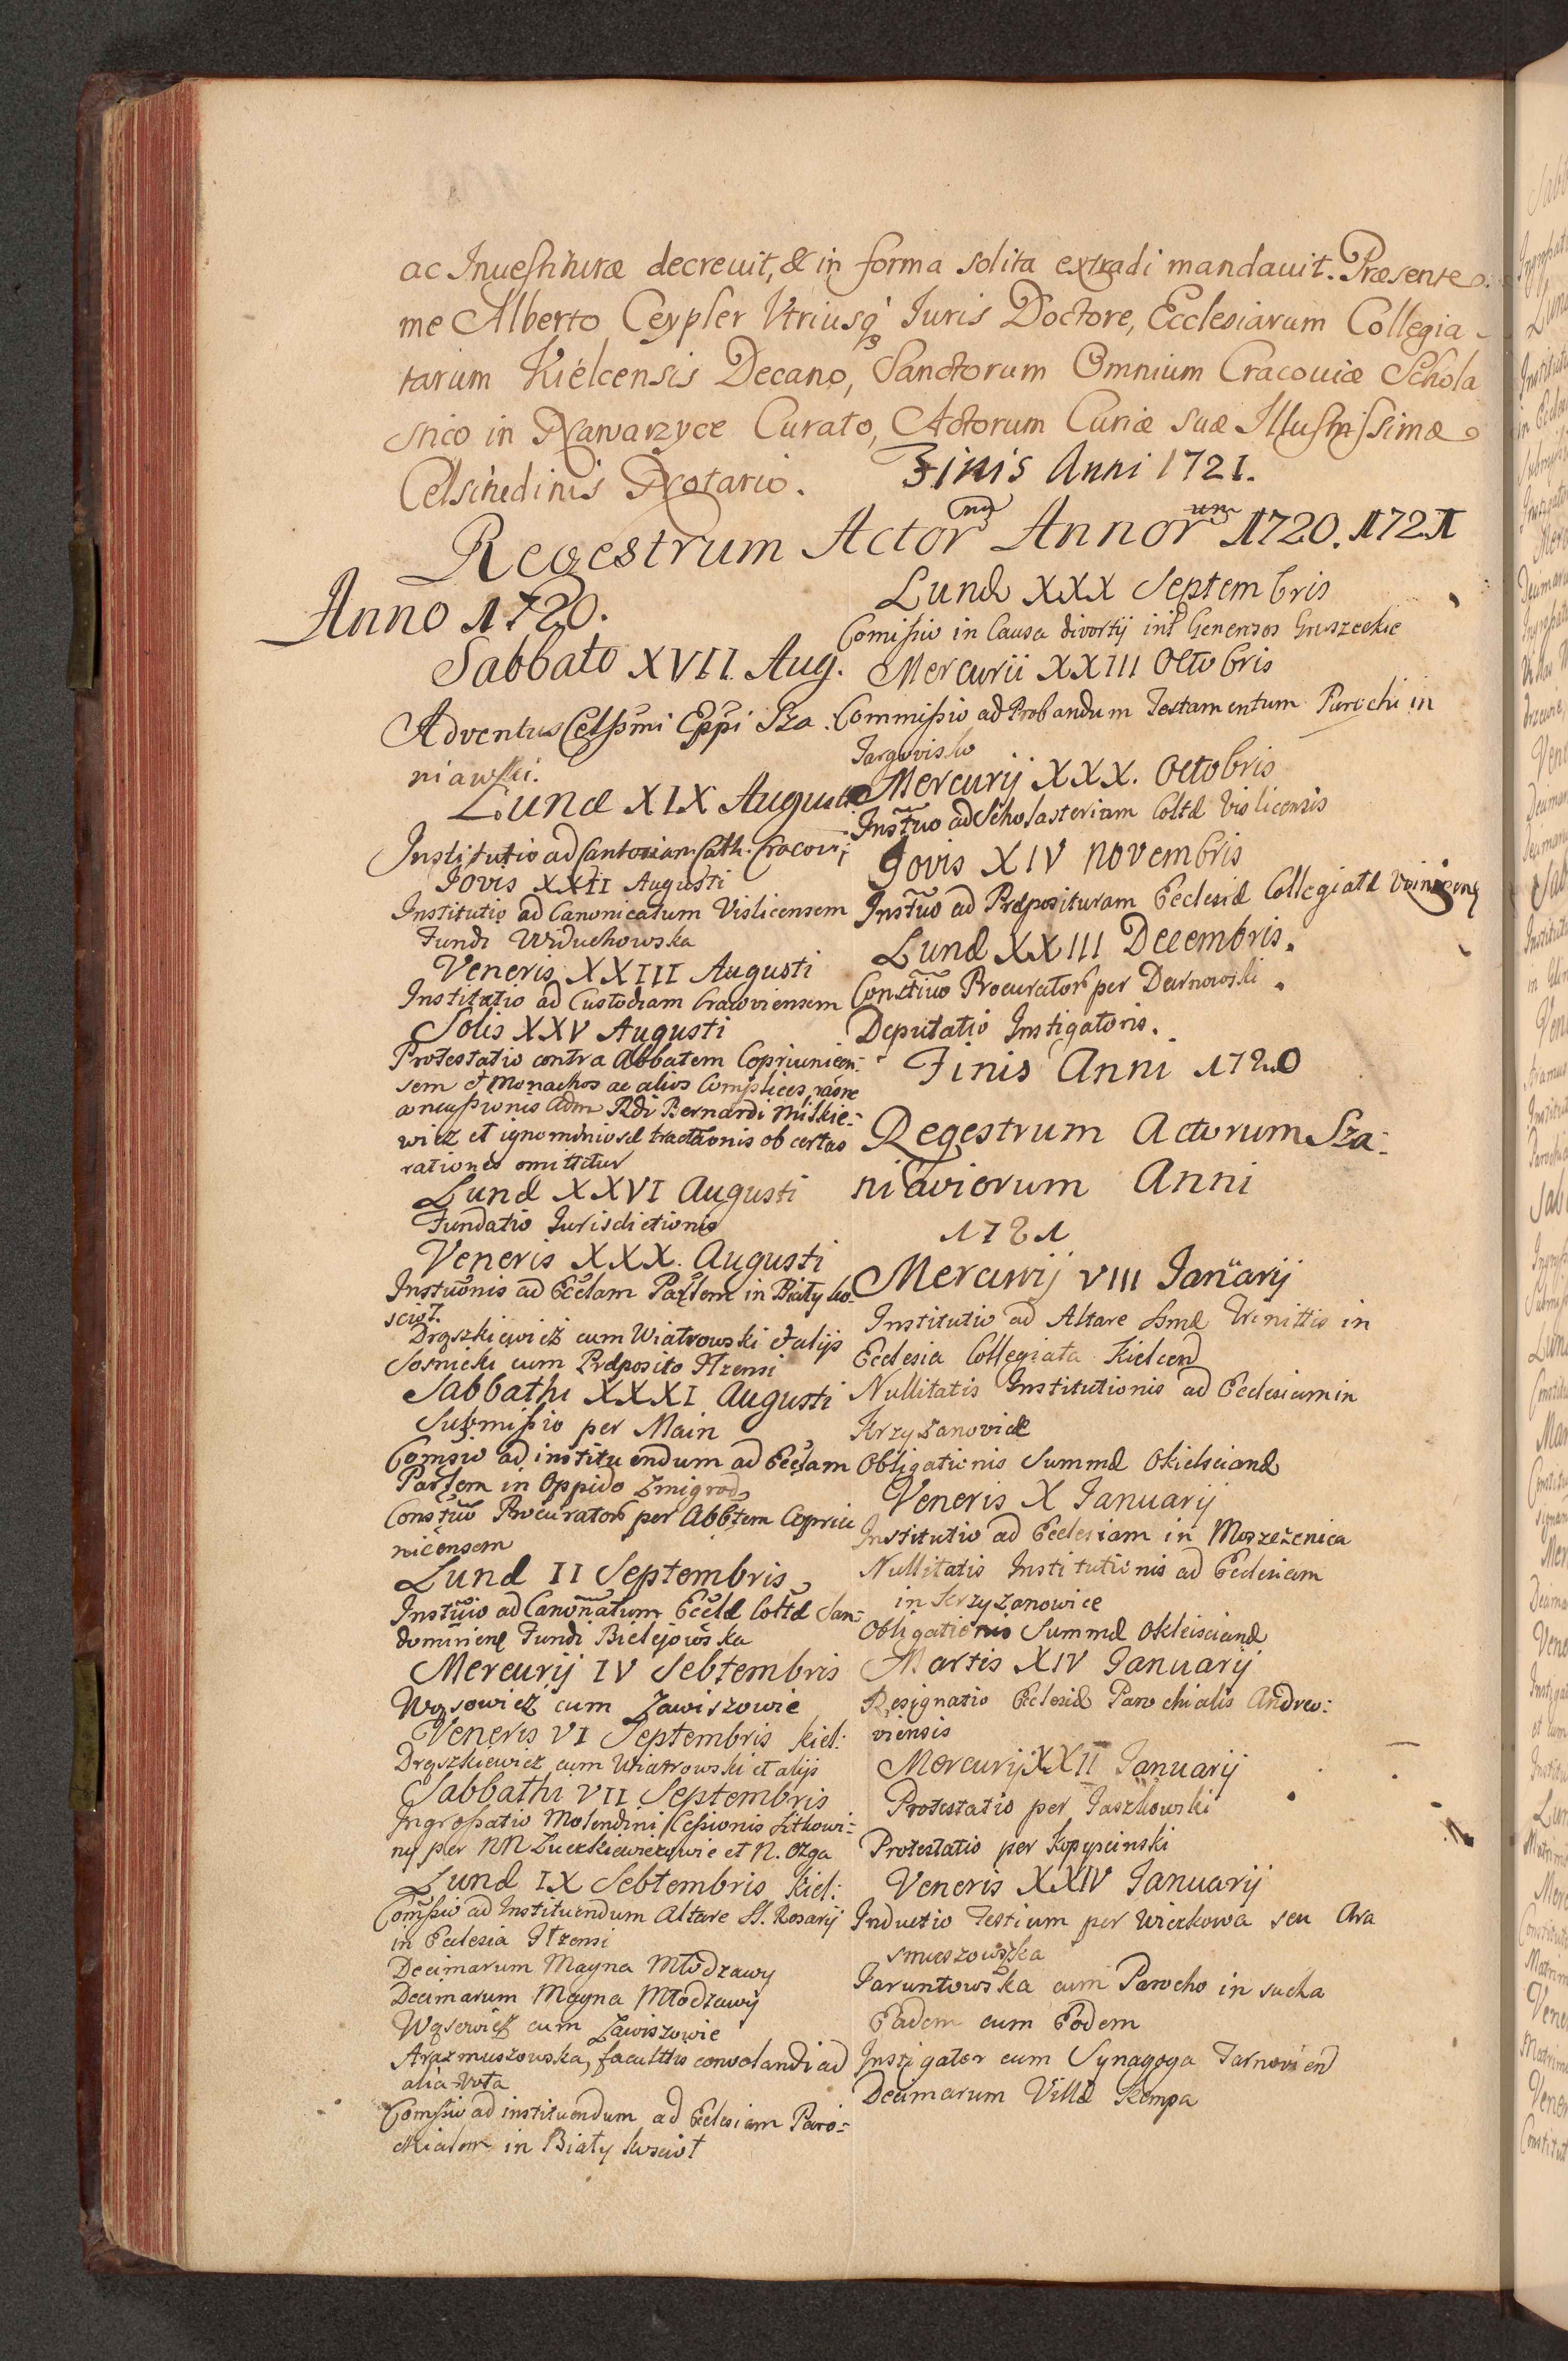 ac Inuestituræ decreuit, & in forma solita extradi mandauit. Præsente
me Alberto Ceypler Vtriusq; Iuris Doctore, Ecclesiarum Collegia-
tarum Kielcensis Decano, Sanctorum Omnium Cracouiæ Schola
stico in Nawarzyce Curato, Actorum Curiæ suæ Illustrissimæ
Celsitudinis Notario.
Finis Anni 1721.
Regestrum Actorum Annorum 1720. 1721
Anno 1720.
Sabbato XVII. Aug.
Adventus Celssmi Eppi Sza-
niawski.
Lunæ XIX Augusti
Institutio ad Cantoriam Cath. Cracov:
Iovis XXII Augusti
Institutio ad Canonicatum Vislicensem
Fundi Widuchowska
Veneris XXIII Augusti
Institutio ad Custodiam Cracoviensem
Solis XXV Augusti
Protestatio contra Abbatem Copriunicen:
sem et Monachos ac alios Complices, raõne
concussionis Adm Rdi Bernardi Milkie:
wicz et ignominiosæ tractãonis ob certas
rationes omittitur
Lunæ XXVI Augusti
Fundatio Iurisdictionis
Veneris XXX. Augusti
Instuõnis ad Ecclam Parlem in Biały ko-
sciół.
Drąszkiewicz cum Wiatrowski et alijs
Sosnicki cum Præposito Ilzensi
Sabbathi XXXI Augusti
Submissio per Main
Comsio ad instituendum ad Ecclam
Parlem in Oppido Zmigrod
Constuo Procurator per Abbtem Copriu
nicensem
Lunæ II Septembris
Instuio ad Canonatum Ecclæ Coltæ San:
domirien Fundi Bielejowska
Mercurij IV Sebtembris
Wąsowicz cum Zawiszowie
Veneris VI Septembris Kiel:
Drąszkiewicz cum Wiatrowski et alijs
Sabbathi VII Septembris
Ingrossatio Molendini Cessionis Sitkowi:
ny per NN Zuczkiewiczowie et N. Ozga
Lunæ IX Sebtembris Kiel:
Comssio ad Instituendum Altare SS. Rosarij
in Ecclesia Ilzensi
Decimarum Magna Młodzawy
Decimarum Magna Młodzawy
Wąsowicz cum Zawiszowie
Arazmuszowska, facultis convolandi ad
alia Vota
Comssio ad instituendum ad Eclesiam Paro:
chialem in Biały kosciół
Lunæ XXX Septembris
Comissio in Causa divortij intr Generosos Gruszeckie
Mercurii XXIII Octobris
Commissio ad Probandum Testamentum Parochi in
Targovisko
Mercurij XXX. Octobris
Instuo ad Scholasteriam Coltæ Vislicensis
Iovis XIV Novembris
Instuo ad Præposituram Ecclesiæ Collegiatæ
Lunæ XXIII Decembris.
Constiuo Procurator per Darnowski.
Deputatio Instigatoris.
Finis Anni 1720
Regestrum Actorum Sza:
niaviorum Anni
1721
Mercurij VIII Ianuarij
Institutio ad Altare Ssmæ Trinittis in
Ecclesia Collegiata Kielcen
Nullitatis Institutionis ad Ecclesiam in
Krzyżanovice
Obligationis Summæ Okielscianæ
Veneris X Ianuarij
Institutio ad Ecclesiam in Moszczenica
Nullitatis Institutionis ad Eclesiam
in Krzyzanowice
Obligationis Summæ Okleiscianæ
Martis XIV Ianuarij
Resignatio Eclesiæ Parochialis Andreo:
viensis
Mercurij XXII Ianuarij
Protestatio per Jaszkowski
Protestatio per Kopyscinski
Veneris XXIV Ianuarij
Inductio Testium per Wiczkowa seu Ara
smuszowszka
Jaruntowska cum Parocho in Sucha
Eadem cum Eodem
Instigator cum Synagoga Tarnovien
Decimarum Villæ Kempa